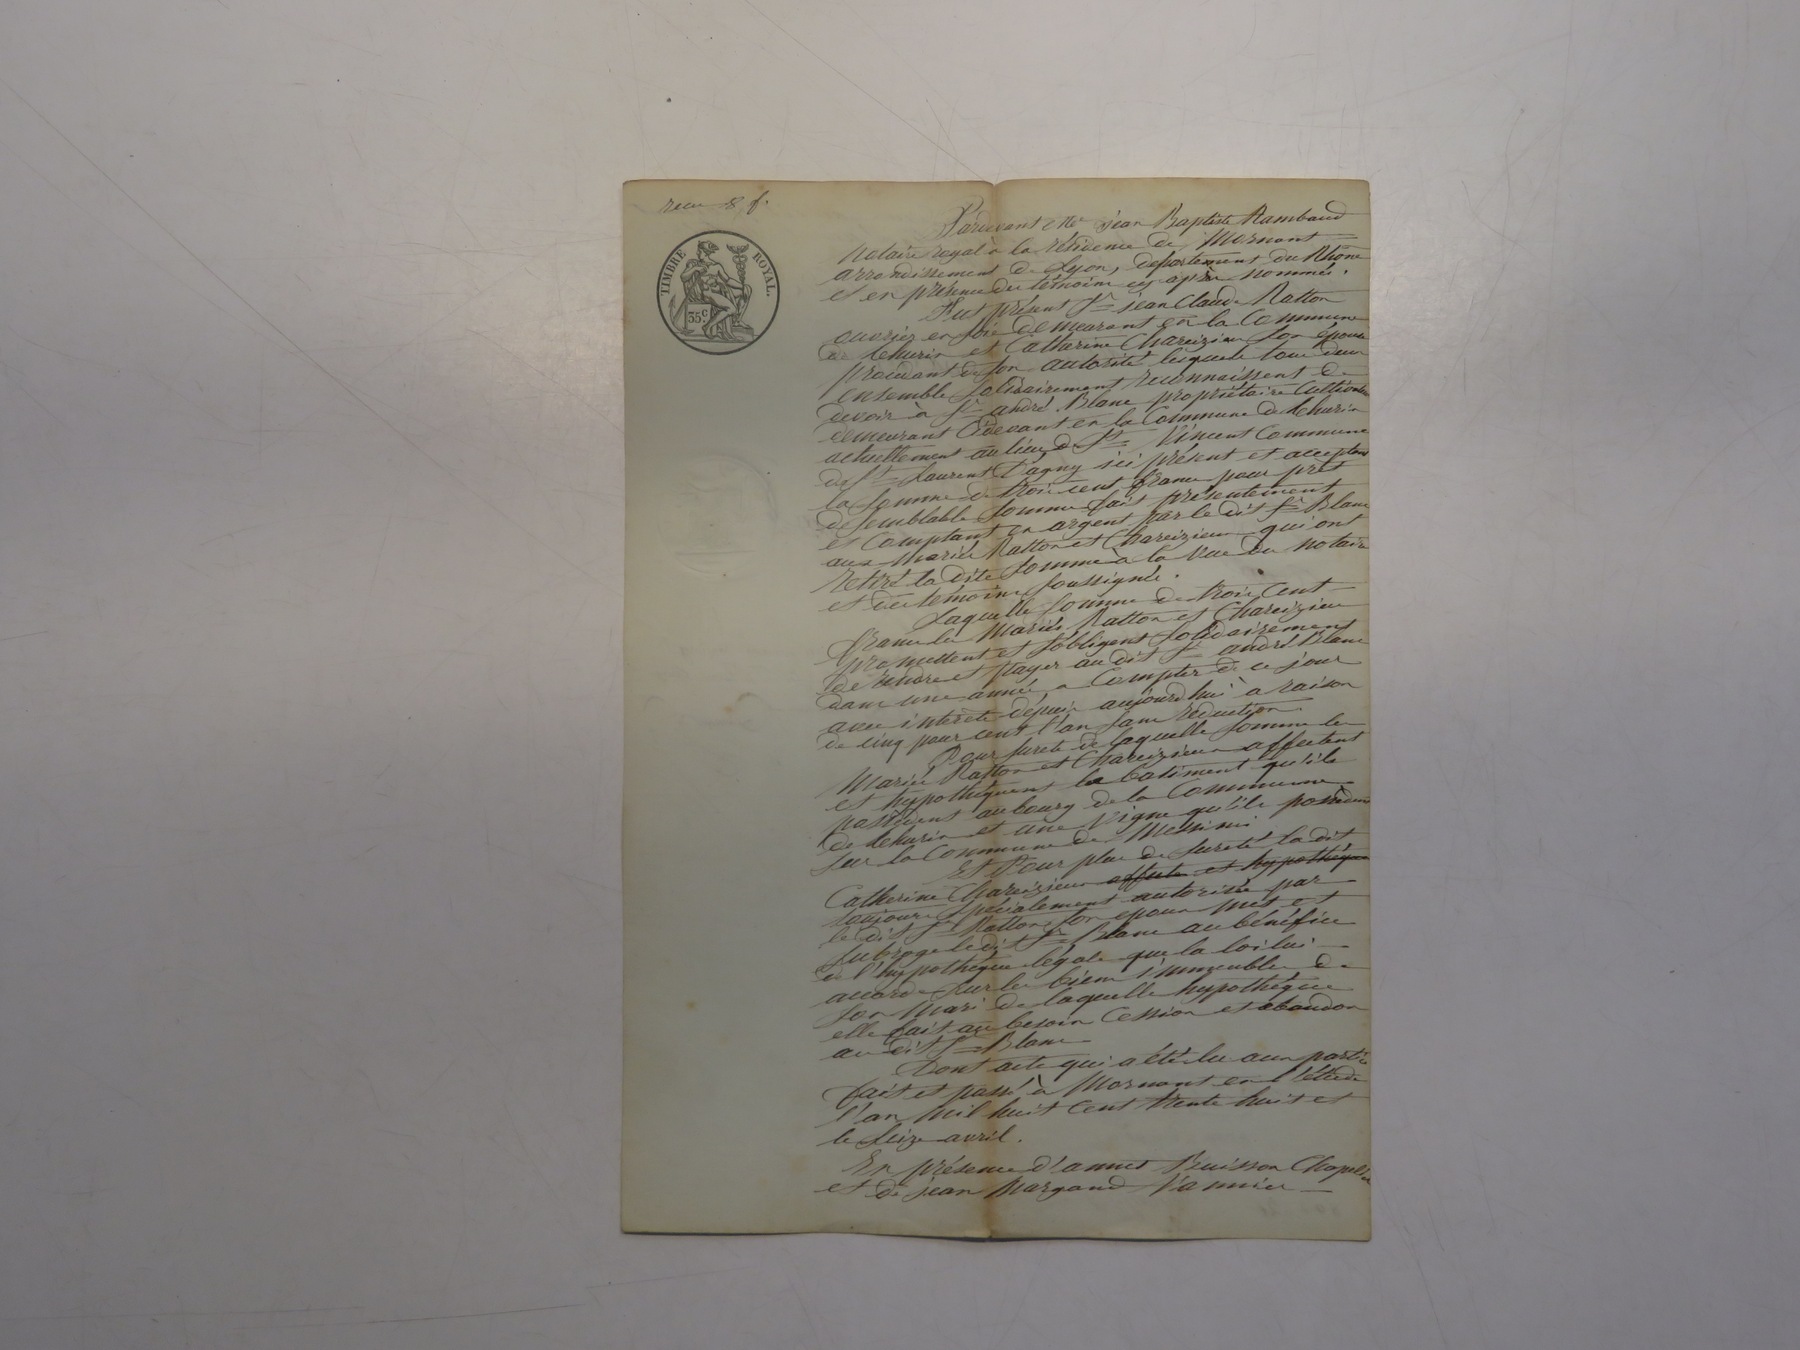 recu 8 f.
TIMBRE ROYAL.
35c.
Pardevant Me jean Baptiste Rambaud
notaire royal a la résidence de Mornant
arrondissement de Lyon, departement du Rhône
et en présence des témoins cy après nommés.
Fut présent Sr jean Claude Ratton
ouvrier en soie demeurant en la Commune
de thurin et Catherine Chareizieu son épouse
procedant de son autorité lesquels tous deux
ensemble solidairement reconnaissent de
devoir à Sr andré Blanc propriétaire Cultivateur
demeurant Cidevant en la Commune de thurin
actuellement au lieu de St Vincent Commune
de St Laurent D'agny ici présent et acceptant
la somme de trois cent francs pour prêt
de semblable somme fait présentement
et Comptant en argent par le dit Sr Blanc
aux mariés Ratton et Chareizieu qui ont
retiré la dite somme à la vue du notaire
et des témoins soussignés.
Laquelle somme de trois cent
francs les mariés Ratton et Chareizieu
promettent et s'obligent solidairement
de rendre et payer au dit Sr andré Blanc
dans une année a Compter de ce jour
avec intérêts dépuis aujourd'hui à raison
de cinq pour cent l'an sans réduction.
Pour sureté de laquelle somme les
Mariés Ratton et Chareizieu affectent
et hypothéquent le batiment qu'ils
possédent au bourg de la Commune
de thurin et une vigne qu'ils possédent
sur la Commune de Messimi
Et Pour plus de sureté la dit
Catherine Chareizieu affecte et hypothéque
toujours spécialement autorisée par
le dit Sr Ratton son epoux met et
subroge le dit Sr Blanc au bénéfice
de l'hypothéque légale que la loi lui
accorde sur les biens immeubles de
son Mari de laquelle hypothéque
elle fait au besoin Cession et abandon
au dit Sr Blanc
Dont acte qui a été lu aux parties
fait et passé à Mornant en l'étude
l'an mil huit cent trente huit et
le seize avril.
En présence d'annet Buisson Chapelier
et de jean Margand Vannier